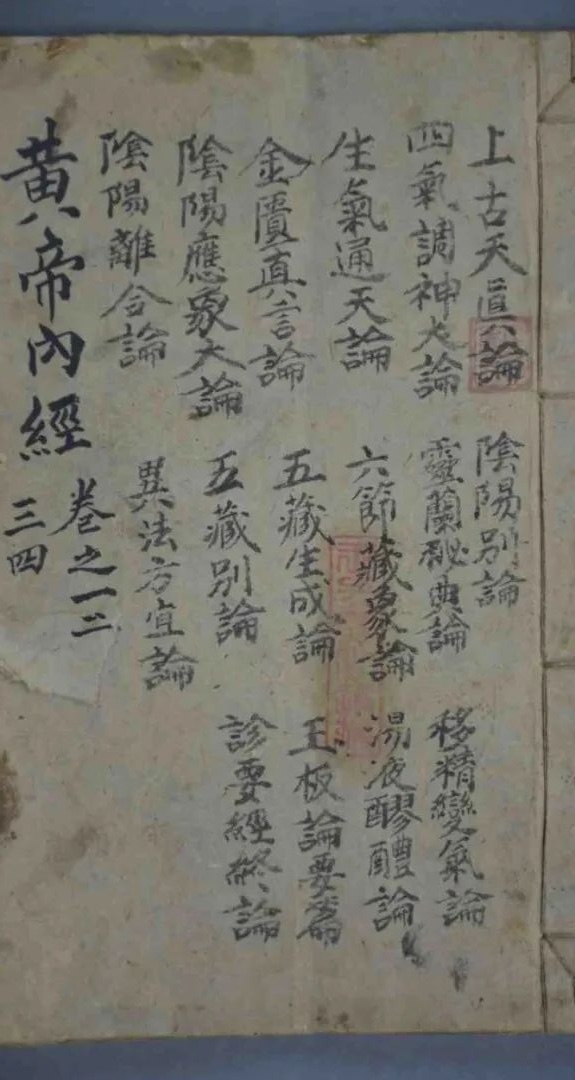 上古天真論
四氣調神大論
生氣通天論
金匱真言論
陰陽應象大論
陰陽離合論
陰陽別論
靈蘭秘典論
六節藏象論
五藏生成論
五藏別論
異法方宜論
移精變氣論
湯液醪醴論
玉板論要篇
診要經終論
黃帝內經
卷之一二
三四